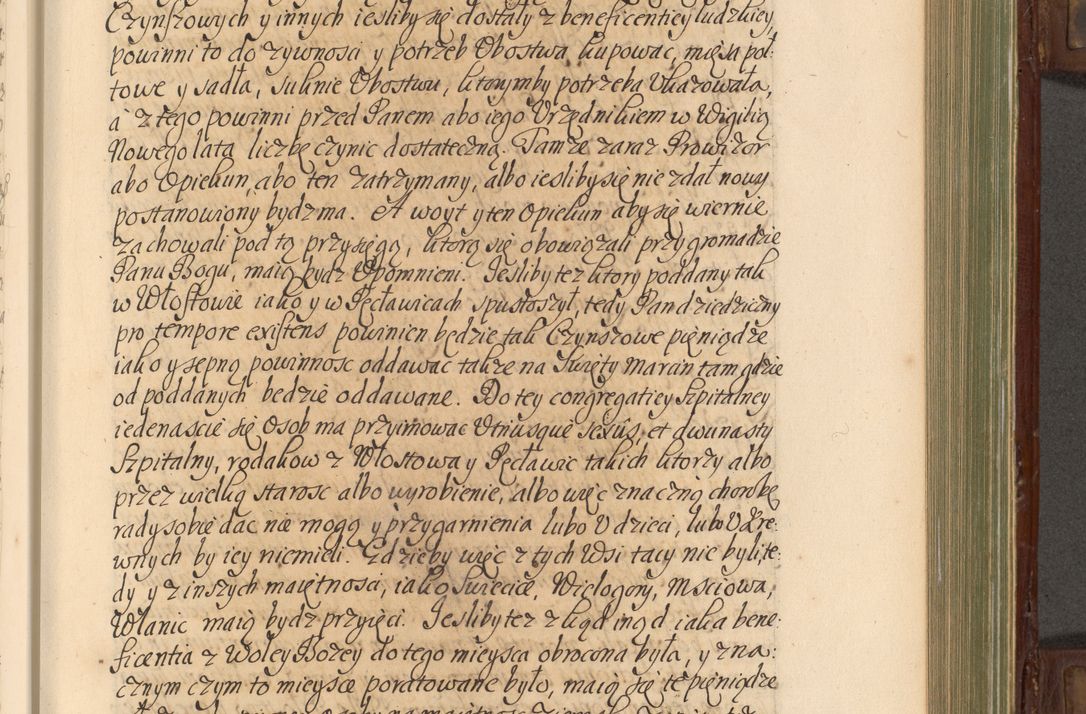 Czynszowych y innych iesliby się dostały z beneficentiey ludzkiey,
powinni to do zywnosci y potrzeb Vbostwa kupować, mięsa poł:
towe y sadła, suknie Vbostwu, ktorymby potrzeba Vkazowała,
a z tego powinni przed Panem abo iego Vrzędnikiem w Wigilią
Nowego lata liczbę czynic dostateczną. Tamze zaraz Prowizor
abo Opiekun, abo ten zatrzymany, albo iesliby się nie zdał nowy
postanowiony bydz ma. A woyt y ten Opiekun aby się wiernie
zachowali pod tą przysięgą, ktorą się obowiązali przy gromadzie
Panu Bogu, maią bydz Vpomnieni. Iesliby tez ktory poddany tak
w Włostowie iako y w Pęcławicach spustoszył, tedy Pan dziedziczny
pro tempore existens powinien będzie tak Czynszowe pieniądze
iako y sepną powinnosc oddawac takze na Swięty Marcin tam gdzie
od poddanych bedzie oddawane. Do tey congregatiey Szpitalney
iedenascie się Osob ma przyimowac Vtriusque sexus, et dwunasty
Szpitalny, rodakow z Włostowa y Pęcławic takich ktorzy albo
przez wielką starosc albo wyrobienie, albo więc znaczną chorobę
rady sobie dac nie mogą y przygarnienia lubo V dzieci, lubo V Kre:
wnych by iey niemieli. Gdzieby więc z tych Wsi tacy nie byli, te:
dy y z inszych maiętnosci, iako Swiecice, Wielogory, Msciowa,
Włanic maią bydz przyięci. Iesliby tez z kąd inąd iaka bene:
ficentia z Woley Bozey do tego mieysca obrocona była, y zna:
cznym czym to mieysce poratowane było, maią się te pieniądze